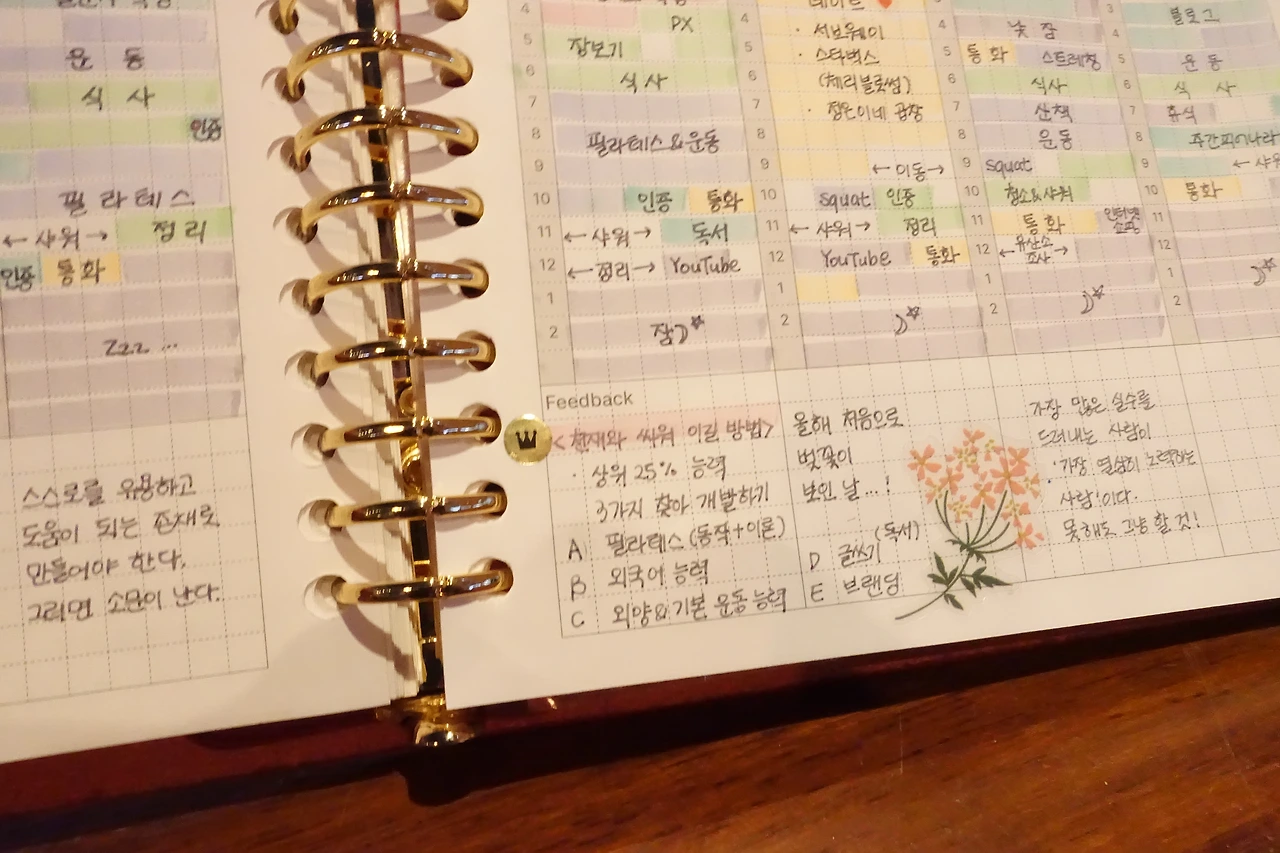 운 동
식 사
인증
필 라 테 스
← 샤워 → 정 리
인증 통 화
Zzz ...
스스로를 유용하고
도움이 되는 존재로
만들어야 한다.
그러면 소문이 난다.
4 PX
5 장보기
6 식 사
7
8 필라테스 & 운동
9
10 인증 통화
11 ← 샤워 → 독서
12 ← 정리 → YouTube
1
2 잠
4 · 서브웨이
5 · 스타벅스
6 (체리블로썸)
7
8
9 ← 이동 →
10 squat 인증
11 ← 샤워 → 정리
12 YouTube 통화
1
2
4 낮 잠
5 통 화 스트레칭
6 식사
7 산책
8 운동
9 squat
10 청소&샤워
11 통 화 인터넷 쇼핑
12
1
2
3 블로그
4
5 운 동
6 식 사
7 휴식
8
9 ← 샤워
10 통화
11
12
1
2
Feedback
<천재와 싸워 이길 방법>
· 상위 25% 능력
3가지 찾아 개발하기
A 필라테스 (동작+이론)
B 외국어 능력
C 외양 & 기본 운동 능력
올해 처음으로
벚꽃이
보인 날...!
D 글쓰기 (독서)
E 브랜딩
가장 많은 실수를
드러내는 사람이
'가장 열심히 노력하는
사람'이다.
못해도 그냥 할 것!